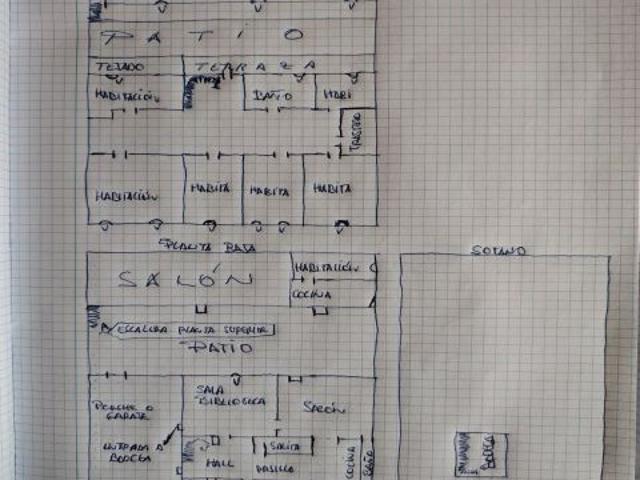 PATIO
TEJADO TERRAZA
HABITACIÓN BAÑO HABI
TRASTERO
HABITACIÓN HABITA HABITA HABITA
PLANTA BAJA
SOTANO
SALÓN HABITACIÓN
COCINA
ESCALERA PLANTA SUPERIOR
PATIO
SALA
BIBLIOTECA
SALÓN
PORCHE O
GARAJE
ENTRADA A
BODEGA
HALL
SALITA
PASILLO
COCINA
BAÑO
BODEGA